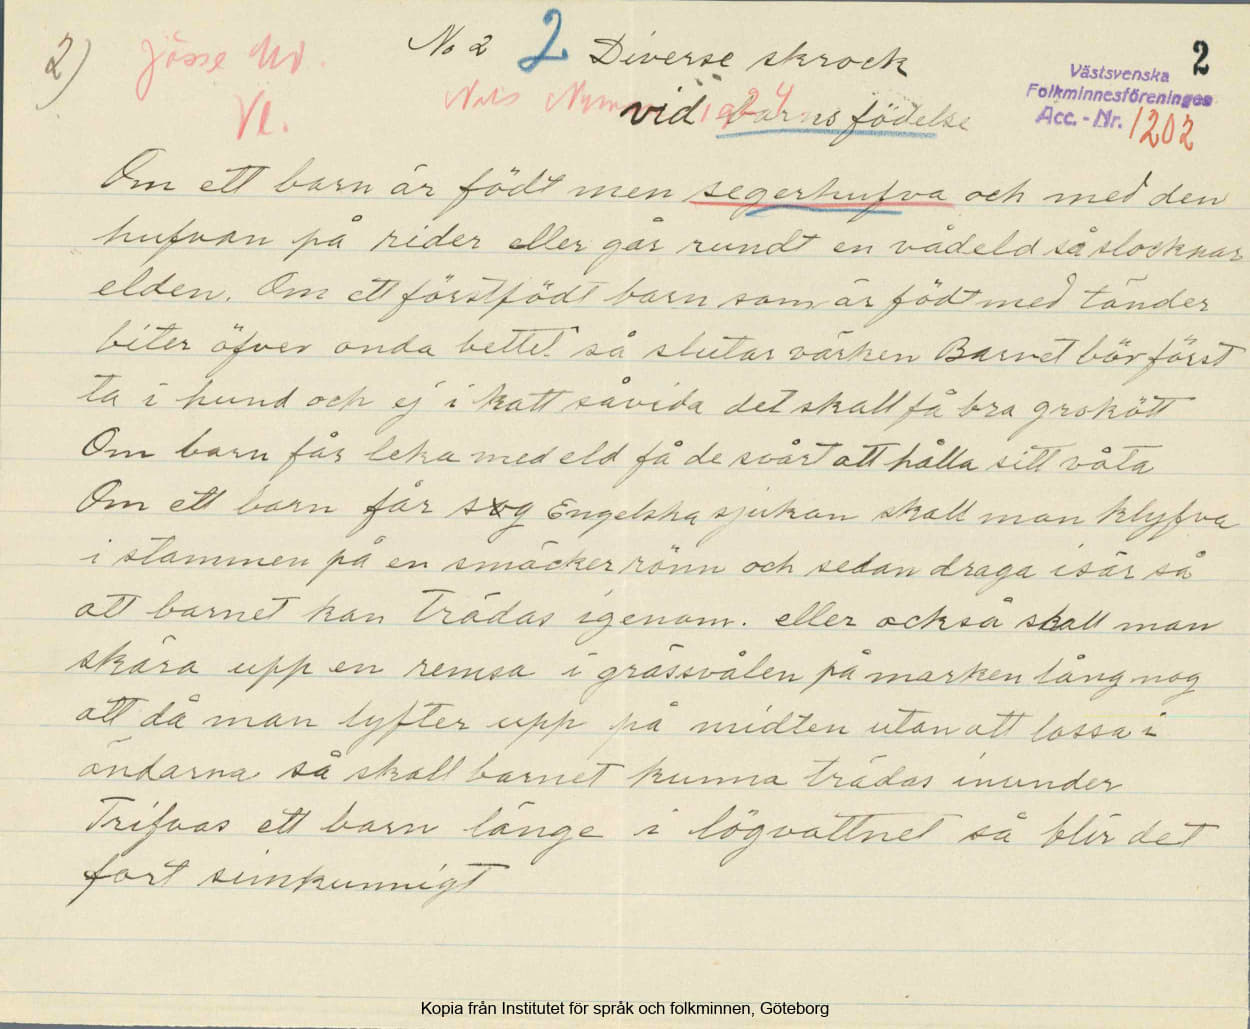 2) Jösse Hd. No 2 2 Diverse skrock 2
Västsvenska
Folkminnesföreningen
Vl. Nils 1924 vid barns födelse
Acc.-Nr. 1202
Om ett barn är födt men segerhufva och med den
hufvan på rider eller går rundt en vådeld så slocknar
elden. Om ett förstfödt barn som är född med tänder
biter öfver onda bettet så slutar värken Barnet bör först
ta i hund och ej i katt såvida det skall få bra grokött
Om barn får leka med eld få de svårt att hålla sitt våta
Om ett barn får sog Engelska sjukan skall man klyfva
i stammen på en smäcker rönn och sedan draga isär så
att barnet kan trädas igenom. eller också skall man
skära upp en remsa i grässvålen på marken lång nog
att då man lyfter upp på midten utan att lossa i
ändarna så skall barnet kunna trädas inunder
Trifvas ett barn länge i lögvattnet så blir det
fort simkunnigt
Kopia från Institutet för språk och folkminnen, Göteborg